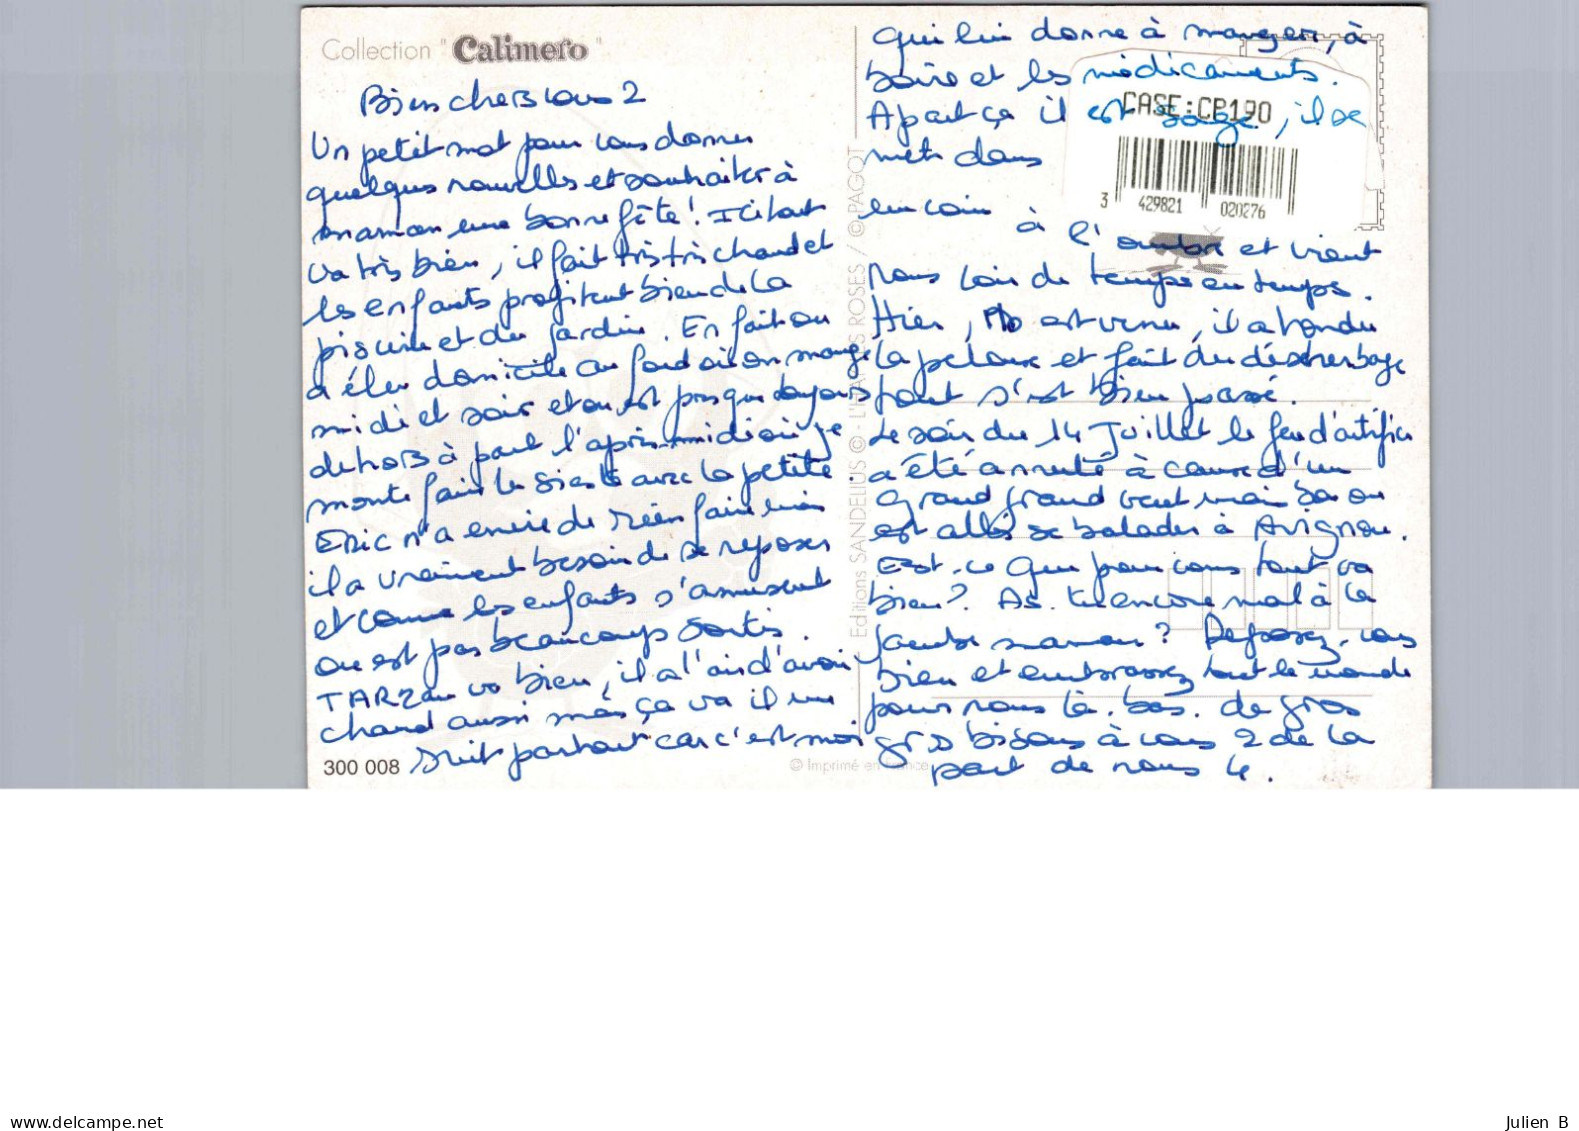 Collection "Calimero"
Bien chers vous 2
Un petit mot pour vous donner
quelques nouvelles et souhaiter à
maman une bonne fête! Ici tout
va très bien, il fait très très chaud et
les enfants profitent bien de la
piscine et du jardin. En fait on
a élu domicile au fond où on mange
midi et soir et on est presque toujours
dehors à part l'après-midi où je
monte faire la sieste avec la petite.
Eric n'a envie de rien faire mais
il a vraiment besoin de se reposer
et comme les enfants s'amusent
on est pas beaucoup sortis.
TARZan va bien, il a l'air d'avoir
chaud aussi mais ça va il me
suit partout car c'est moi
300 008
Editions SANDELIUS © - L'HAY LES ROSES / © PAGOT
© Imprimé en France
qui lui donne à manger, à
boire et les médicaments.
A part ça il est sage, il se
met dans
un coin à l'ombre et vient
nous voir de temps en temps.
Hier, est venu, il a tondu
la pelouse et fait du désherbage
tout s'est bien passé.
Le soir du 14 Juillet le feu d'artifice
a été annulé à cause d'un
grand grand vent mais bon on
est allés se balader à Avignon.
Est-ce que pour vous tout va
bien? As-tu encore mal à la
jambe maman? Reposez-vous
bien et embrassez tout le monde
pour nous là-bas. de gros
gros bisous à vous 2 de la
part de nous 4.
CASE:CP190
3 429821 020276
www.delcampe.net
Julien B